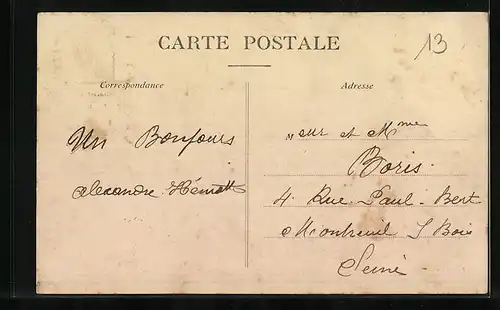 CARTE POSTALE
13
Correspondance
Adresse
Un Bonjours
Alexandre
Meur et Mme
Boris.
4 Rue Paul-Bert
Montreuil S Bois
Seine